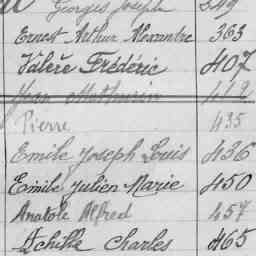 Georges Joseph 349
Ernest Arthur Alexandre 363
Valère Frédéric 407
Jean Mathurin 412
Pierre 435
Emile Joseph Louis 436
Emile Julien Marie 450
Anatole Alfred 457
Achille Charles 465